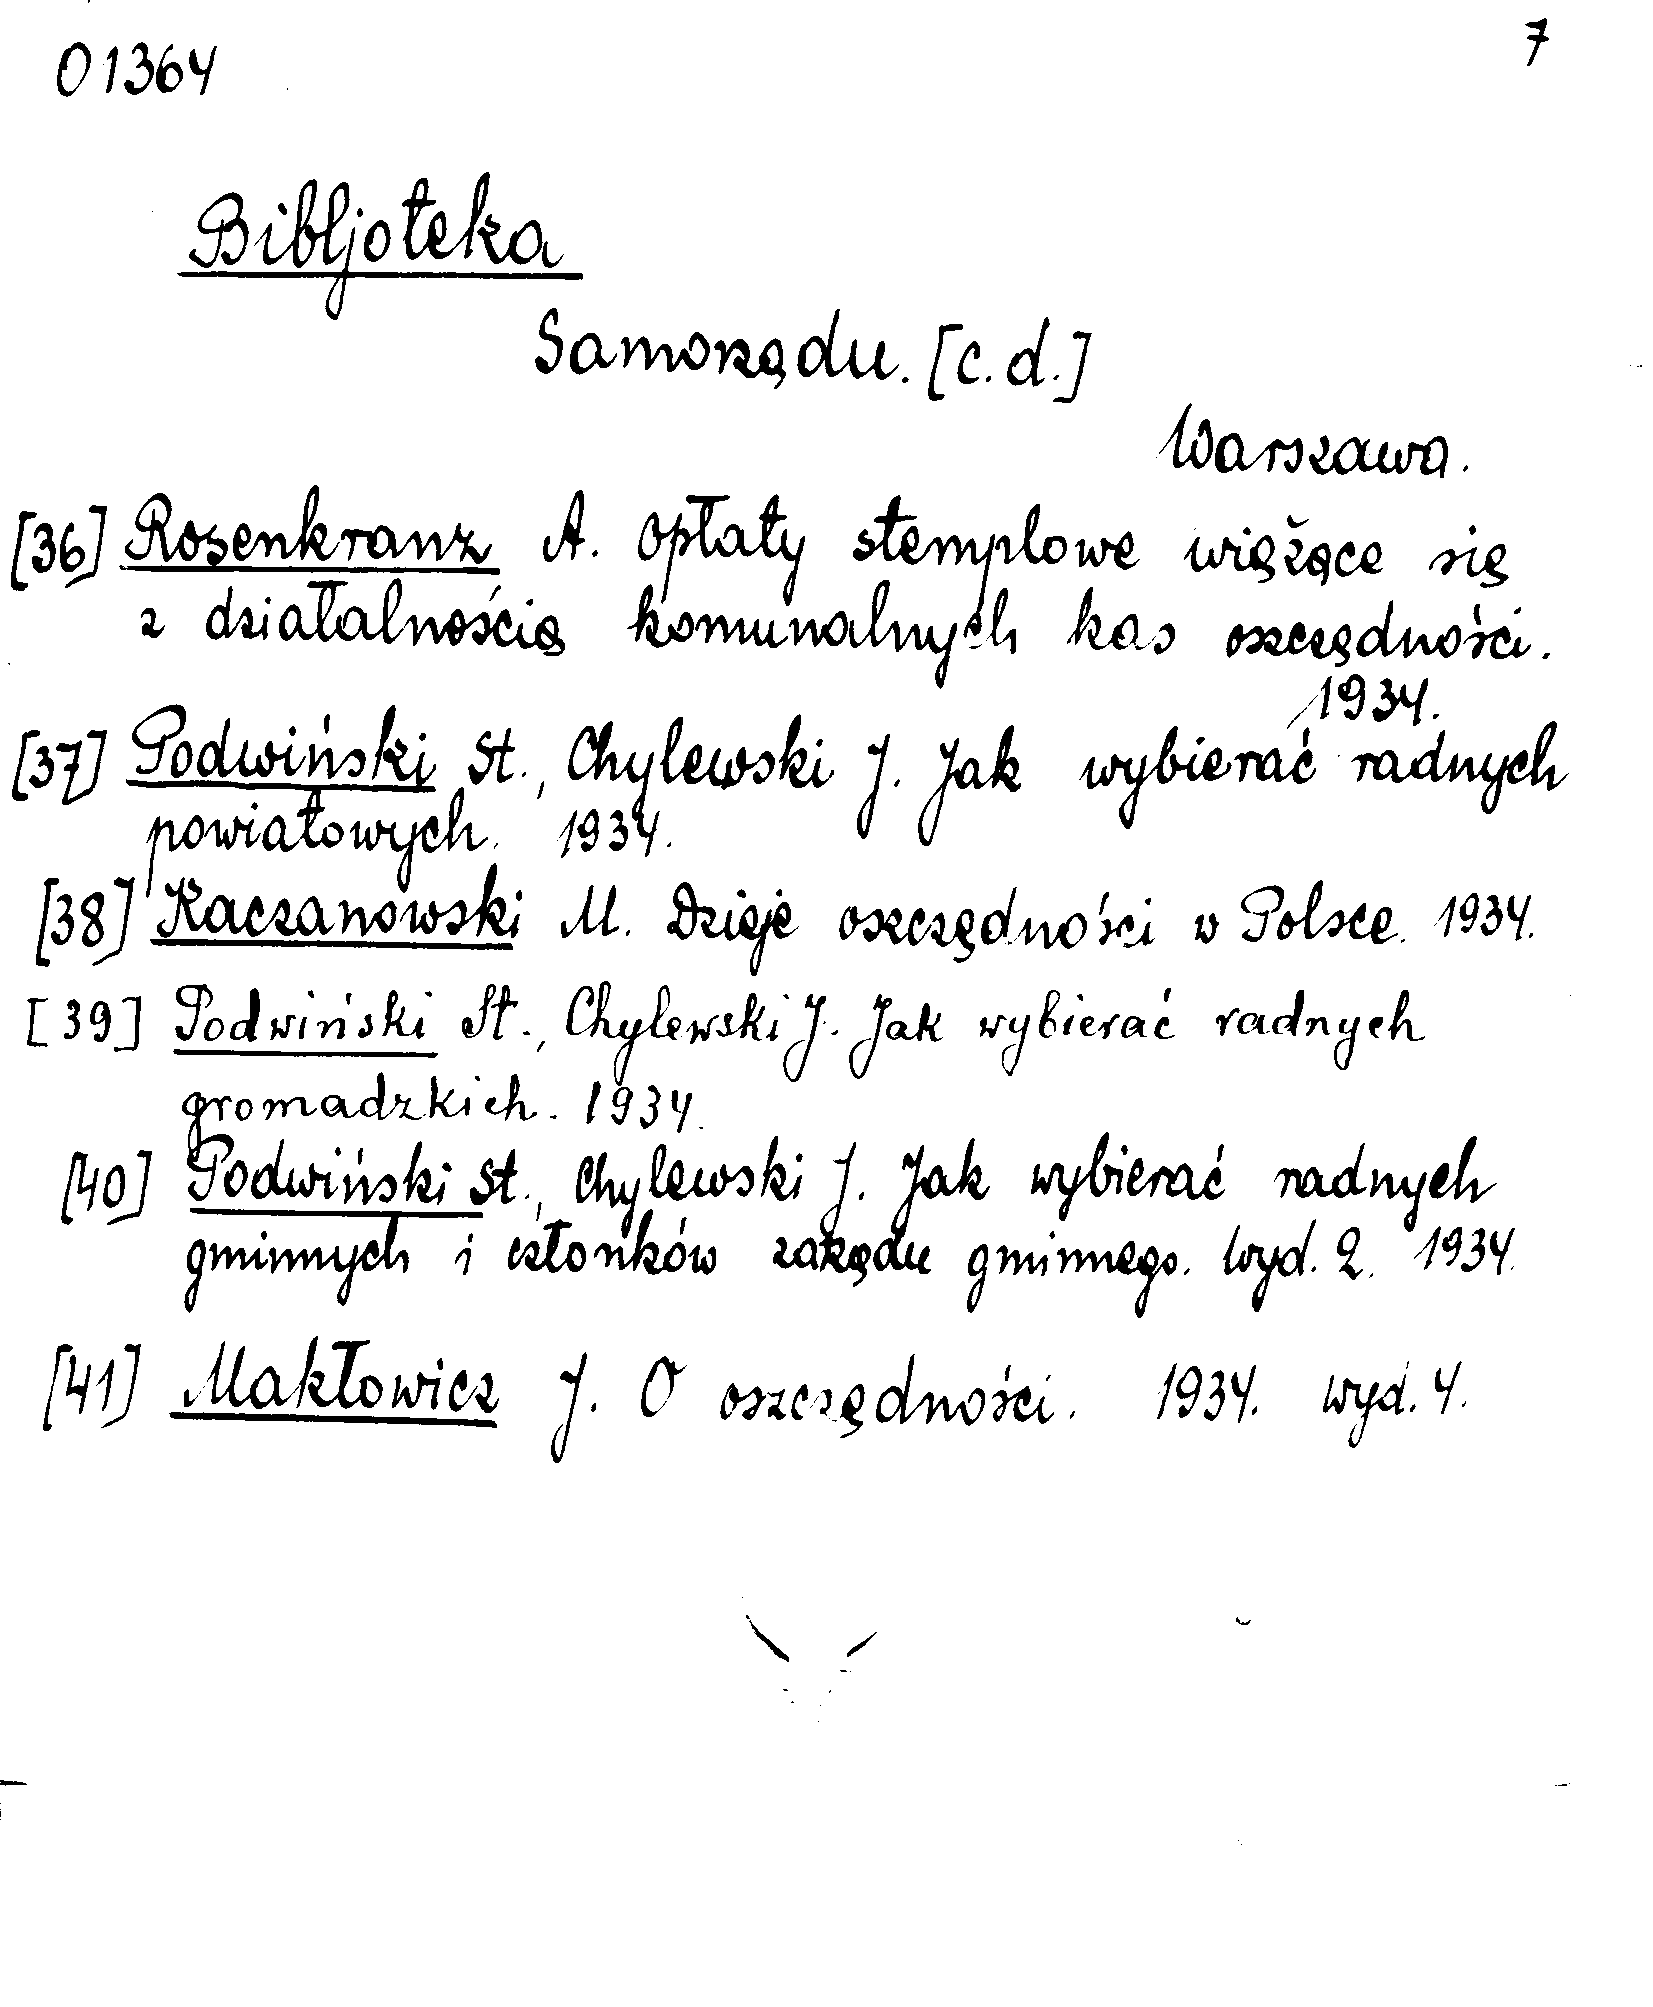 01364
7
Bibljoteka
Samorządu. [c.d.]
Warszawa.
[36] Rosenkranz A. Opłaty stemplowe wiążące się
z działalnością komunalnych kas oszczędności.
1934.
[37] Podwiński St., Chylewski J. Jak wybierać radnych
powiatowych. 1934.
[38] Kaczanowski M. Dzieje oszczędności w Polsce. 1934.
[39] Podwiński St., Chylewski J. Jak wybierać radnych
gromadzkich. 1934.
[40] Podwiński St., Chylewski J. Jak wybierać radnych
gminnych i członków zarządu gminnego. Wyd. 2. 1934.
[41] Makłowicz J. O oszczędności. 1934. wyd. 4.